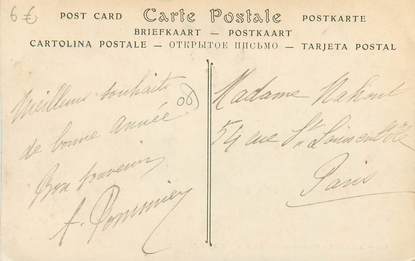 6€
POST CARD Carte Postale POSTKARTE
BRIEFKAART — POSTKAART
CARTOLINA POSTALE — ОТКРЫТОЕ ПИСЬМО — TARJETA POSTAL
Meilleurs souhaits
de bonne année
Bon souvenir
A. Pommier
06
Madame
54 rue St Louis en l'Ile
Paris